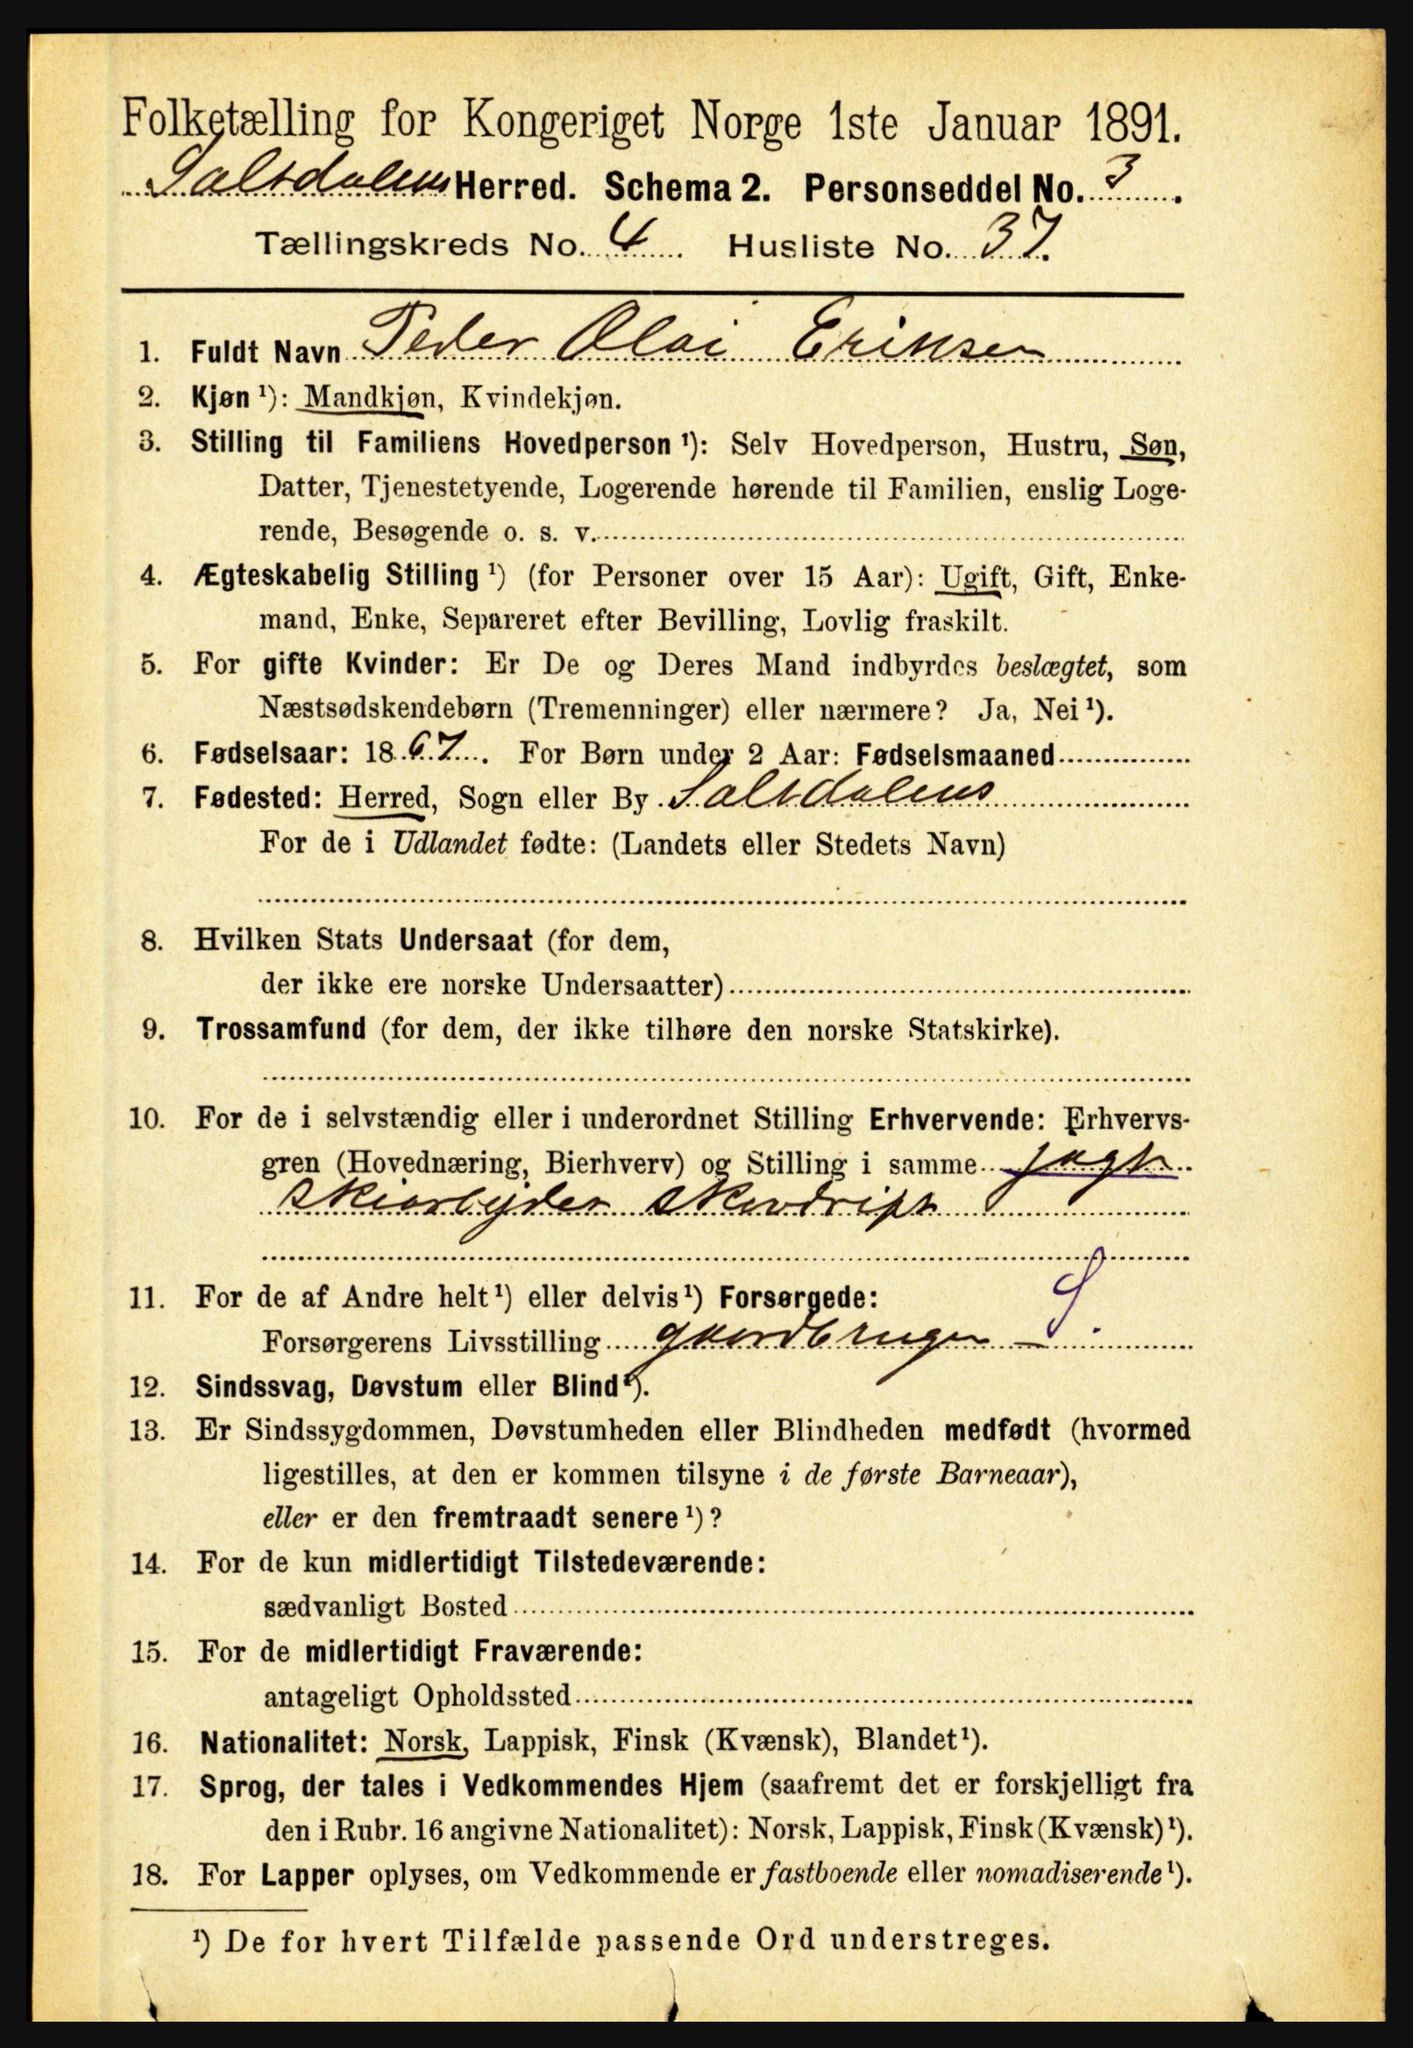 Folketælling for Kongeriget Norge 1ste Januar 1891.
Saltdalens Herred. Schema 2. Personseddel No. 3.
Tællingskreds No. 4 Husliste No. 37.
1. Fuldt Navn Peder Olai Eriksen
2. Kjøn ¹): Mandkjøn, Kvindekjøn.
3. Stilling til Familiens Hovedperson ¹): Selv Hovedperson, Hustru, Søn,
Datter, Tjenestetyende, Logerende hørende til Familien, enslig Loge-
rende, Besøgende o. s. v.
4. Ægteskabelig Stilling ¹) (for Personer over 15 Aar): Ugift, Gift, Enke-
mand, Enke, Separeret efter Bevilling, Lovlig fraskilt.
5. For gifte Kvinder: Er De og Deres Mand indbyrdes beslægtet, som
Næstsødskendebørn (Tremenninger) eller nærmere? Ja, Nei ¹).
6. Fødselsaar: 1867. For Børn under 2 Aar: Fødselsmaaned
7. Fødested: Herred, Sogn eller By Saltdalens
For de i Udlandet fødte: (Landets eller Stedets Navn)
8. Hvilken Stats Undersaat (for dem,
der ikke ere norske Undersaatter)
9. Trossamfund (for dem, der ikke tilhøre den norske Statskirke).
10. For de i selvstændig eller i underordnet Stilling Erhvervende: Erhvervs-
gren (Hovednæring, Bierhverv) og Stilling i samme
Skovdrift
11. For de af Andre helt ¹) eller delvis ¹) Forsørgede: S
Forsørgerens Livsstilling gaardbruger
12. Sindssvag, Døvstum eller Blind ¹).
13. Er Sindssygdommen, Døvstumheden eller Blindheden medfødt (hvormed
ligestilles, at den er kommen tilsyne i de første Barneaar),
eller er den fremtraadt senere ¹)?
14. For de kun midlertidigt Tilstedeværende:
sædvanligt Bosted
15. For de midlertidigt Fraværende:
antageligt Opholdssted
16. Nationalitet: Norsk, Lappisk, Finsk (Kvænsk), Blandet ¹).
17. Sprog, der tales i Vedkommendes Hjem (saafremt det er forskjelligt fra
den i Rubr. 16 angivne Nationalitet): Norsk, Lappisk, Finsk (Kvænsk) ¹).
18. For Lapper oplyses, om Vedkommende er fastboende eller nomadiserende ¹).
¹) De for hvert Tilfælde passende Ord understreges.